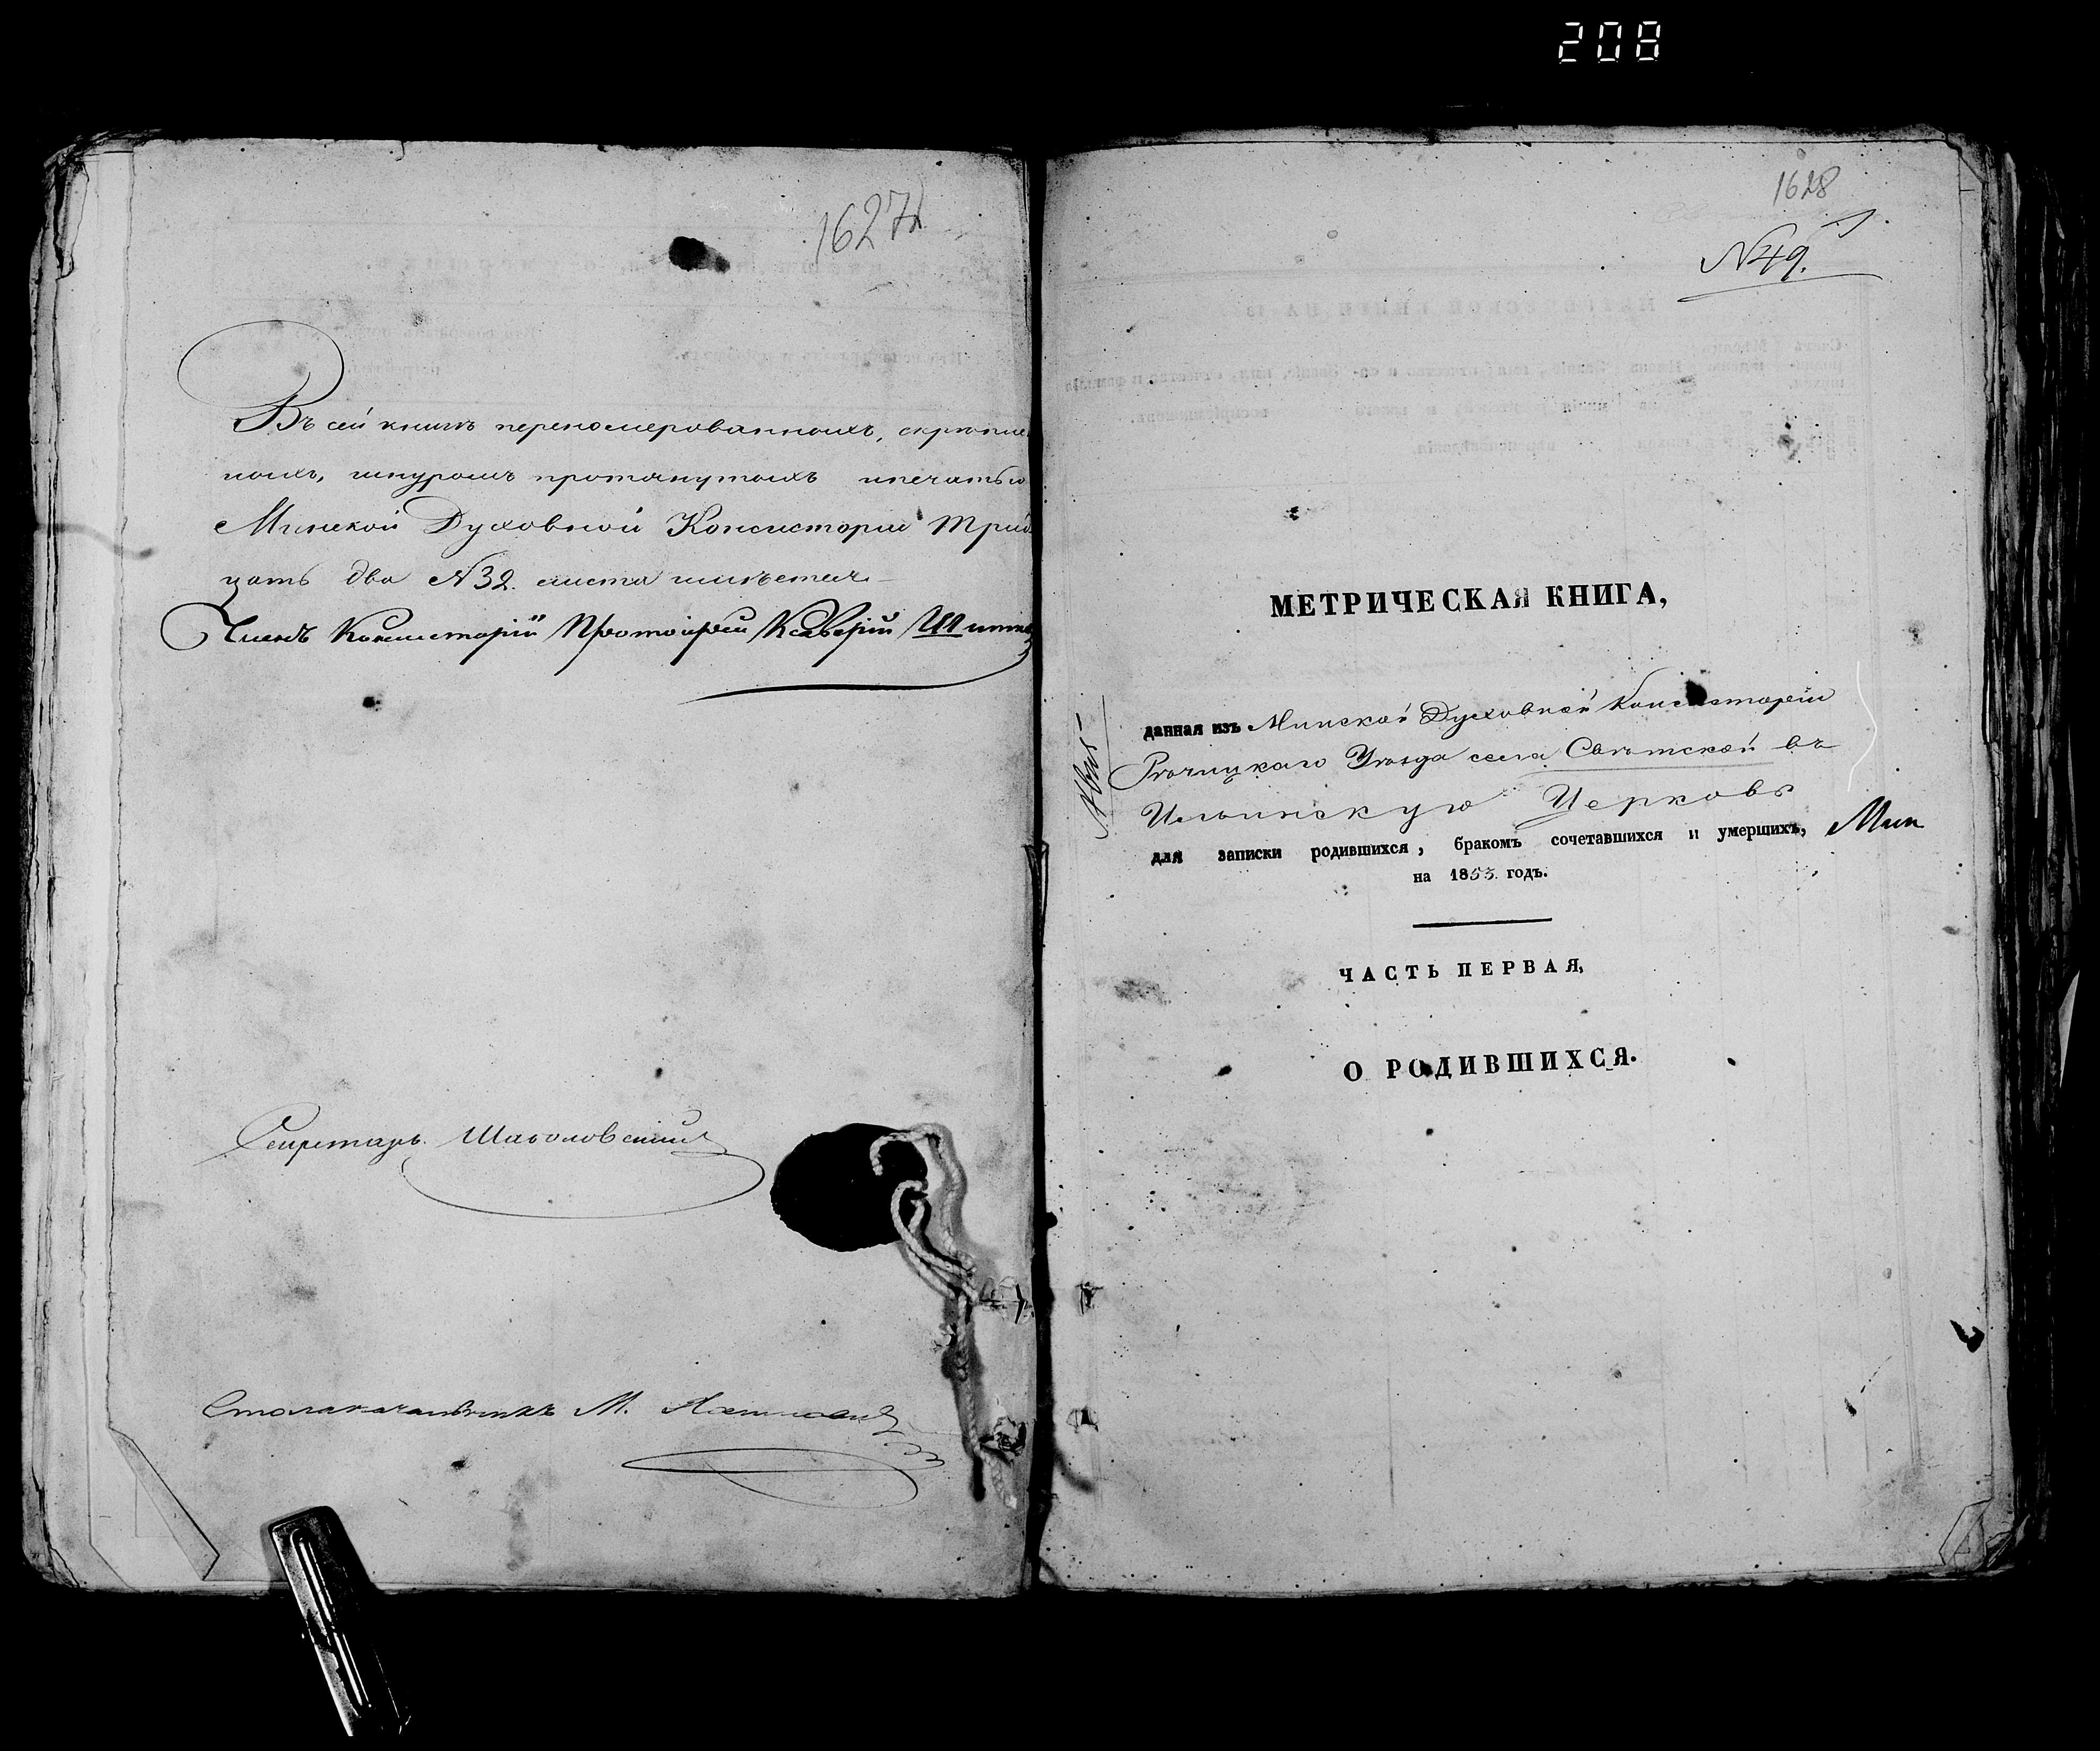 208
1627
Въ сей книгѣ перенумерованныхъ, скрѣплен
ныхъ, шнуромъ протянутыхъ и печатью
Минской Духовной Консисторіи трид
цать два №32. листа имѣется
Членъ Консисторіи Протоіерей Ксаверій
Секретарь
Столоначальникъ М.
1628
№49.
МЕТРИЧЕСКАЯ КНИГА,
данная изъ Минской Духовной Консисторіи
Рѣчицкаго Уѣзда села Свѣтской въ
Ильинскую Церковь
для записки родившихся, бракомъ сочетавшихся и умерщихъ,
на 1853. годъ.
ЧАСТЬ ПЕРВАЯ,
О РОДИВШИХСЯ.